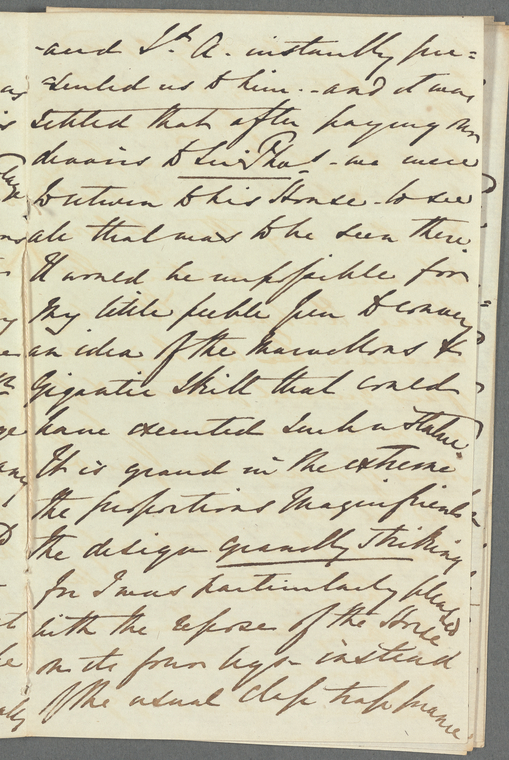 -and Ld. A. instantly pre=
sented us to him -- and it was
settled that after paying our
devoirs to Sir Thos - we were
to return to his House - to see
all that was to be seen there.
It would be impossible for
my little feeble pen to convey
an idea of the marvellous &
Gigantic Skill that could
have executed such a Statue.
It is grand in the extreme
the proportions Magnificent
the design grandly striking
for I was particularly pleased
with the repose of the Horse
on its four legs - instead
of the usual clap trap prance